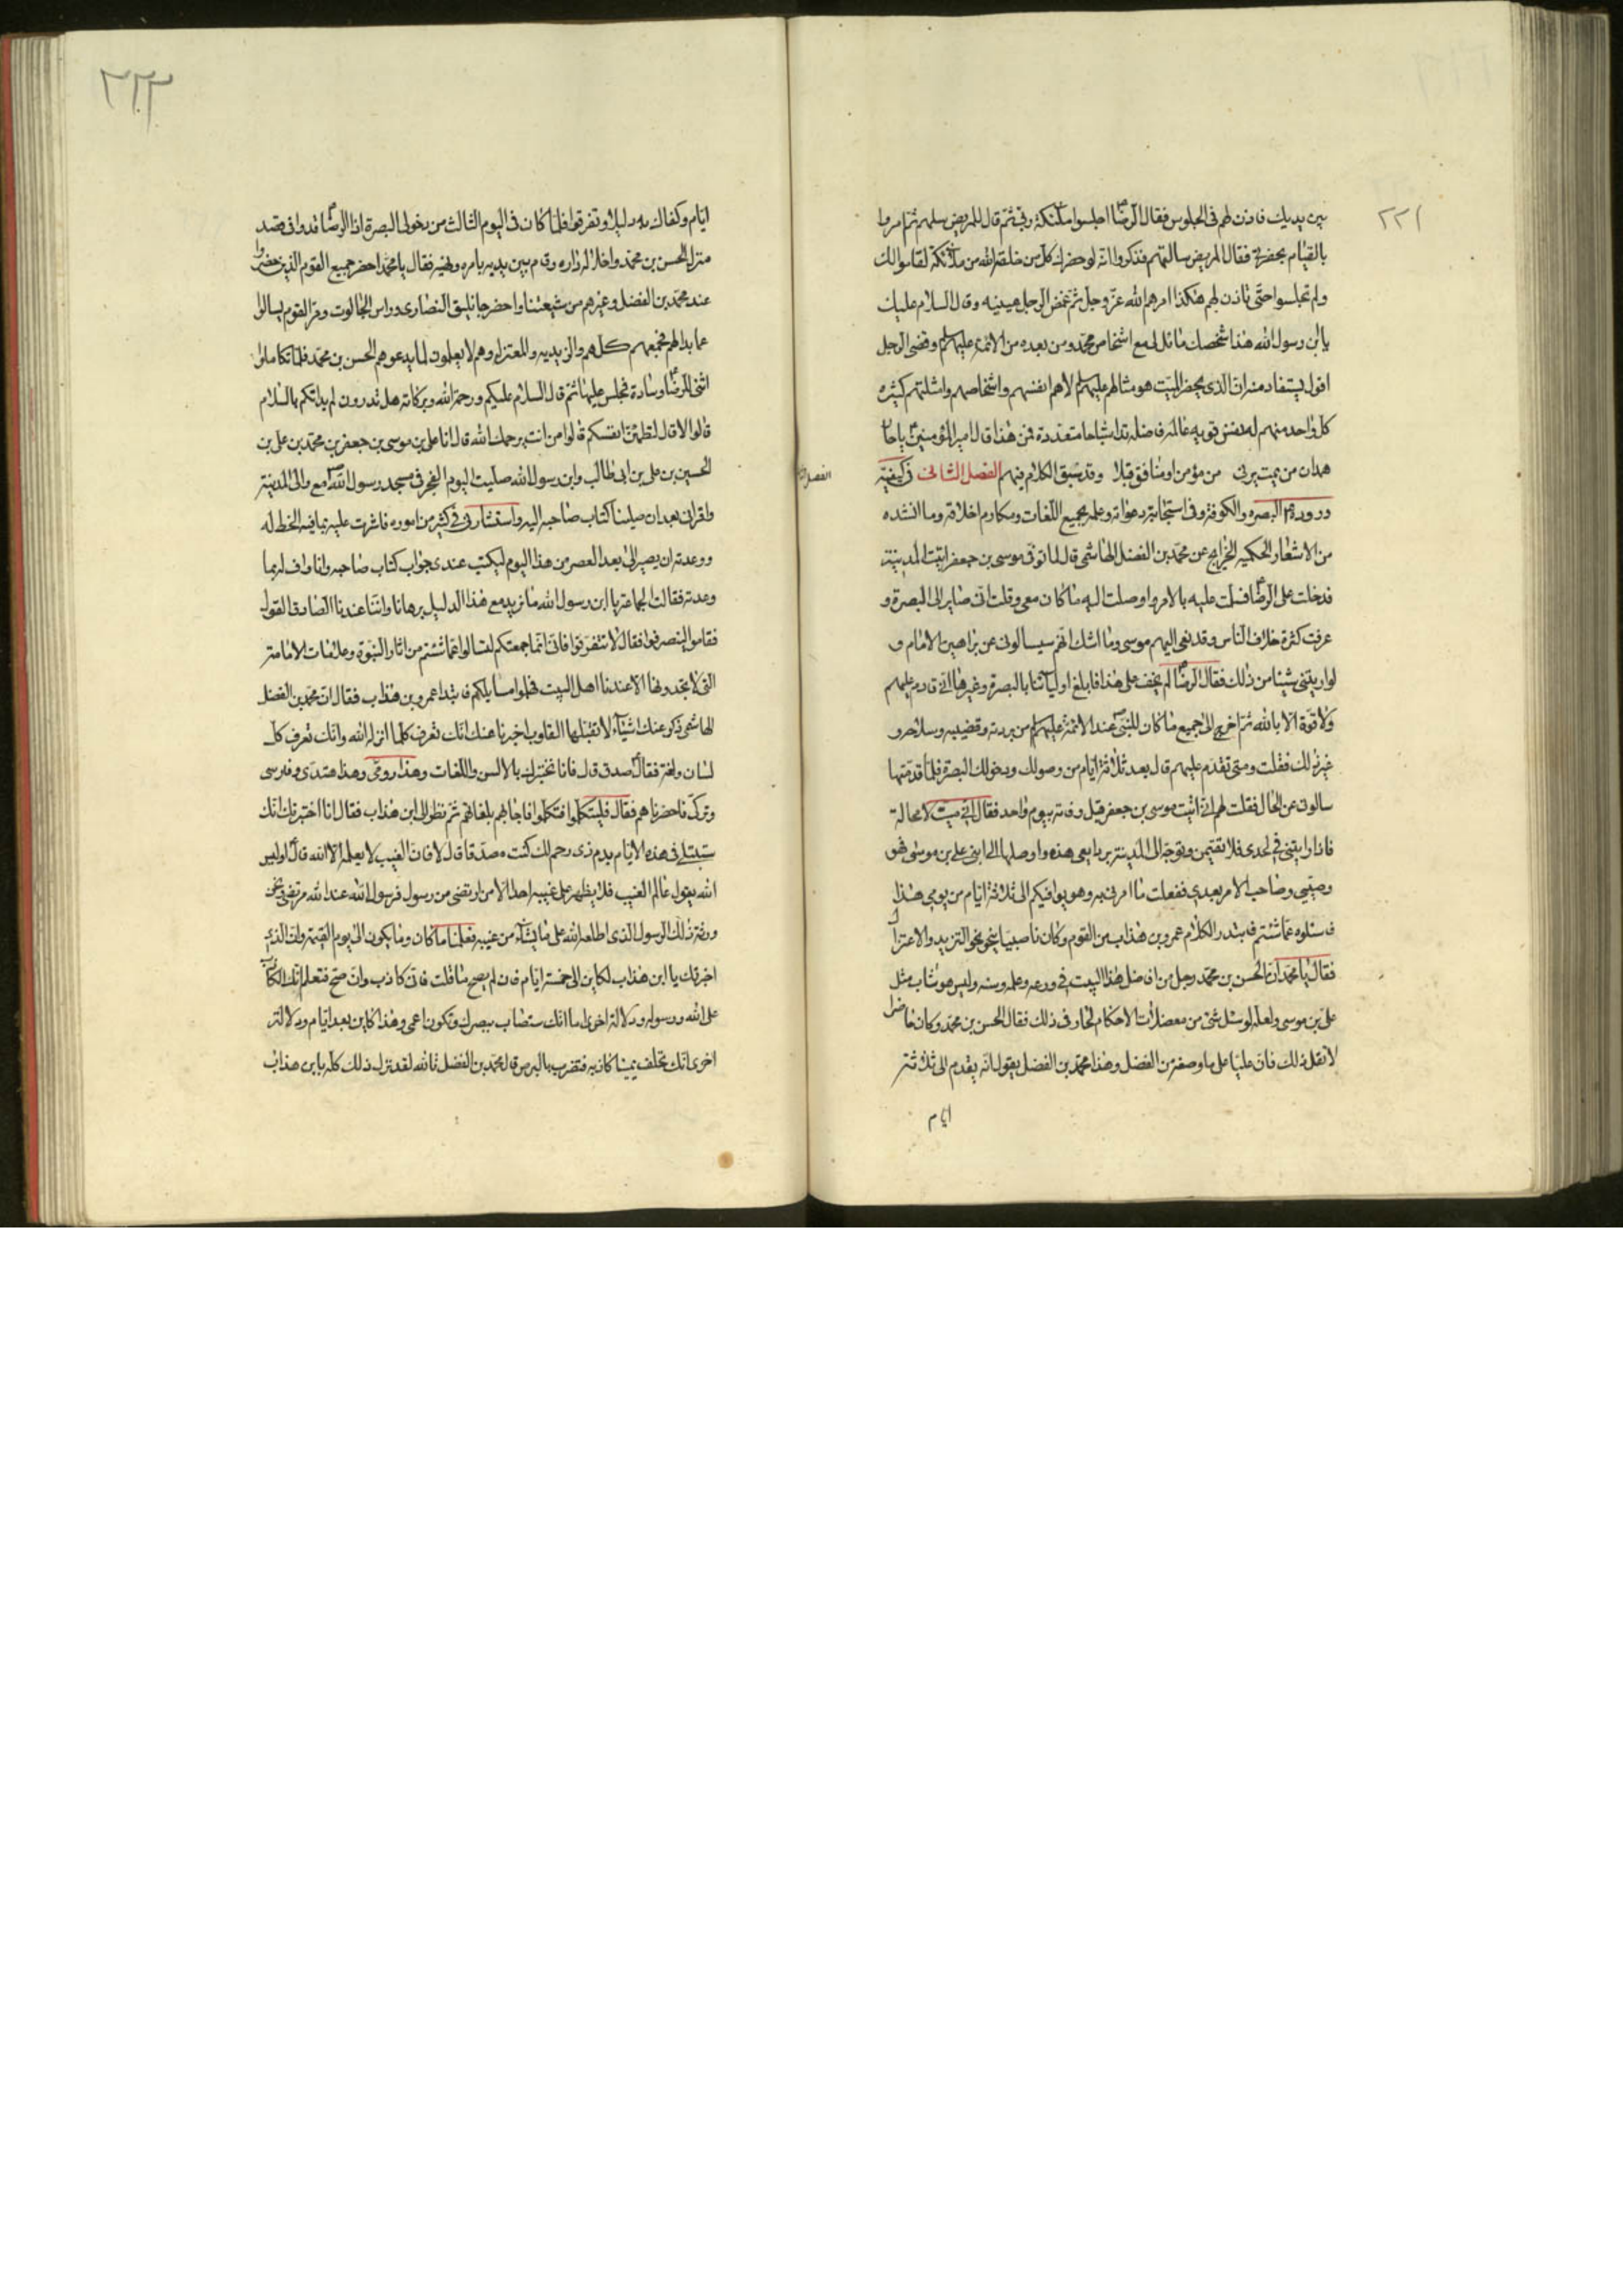 ٢٢١
بين يديك فاذن لهم فى الجلوس فقال الرضا اجلسوا ملئكة ربى ثم قال للمريض سلهم ثم امروا
بالقيام بحضرتى فقال المريض سالتهم فذكروا انه لو حضرك كل من خلقه الله من ملئكته لقاموا لك
ولم تجلسوا حتى تاذن لهم هكذا امرهم الله عز وجل ثم غمض الرجل عينيه وقال السلام عليك
يابن رسول الله هذا شخصك ماثل لى مع اشخاص محمد ومن بعده من الائمة عليهم السلم وقضى الرجل
اقول يستفاد منه ان الذى يحضر الميت هو مثالهم عليهم السلم لا هم انفسهم واشخاصهم وامثلتهم كثيرة
كل واحد منهم له نفس قويه عالمة فاضله تدا اشباحا متعددة فمن هذا قال امير المؤمنين ياحار
همدان من يمت يرنى من مؤمن او منافق قبلا وقد سبق الكلام فيهم الفصل الثانى فى كيفية
وروده البصره والكوفة وفى استجابة دعواته وعلمه بجميع اللغات ومكارم اخلاقه وما انشده
من الاشعار الحكميه الخرايج عن محمد بن الفضل الهاشمى قال لما توفى موسى بن جعفر اتيت المدينة
فدخلت على الرضا فسلمت عليه بالامر واوصلت اليه ما كان معى وقلت انى صاير الى البصرة و
عرفت كثرة خلاف الناس وقد نعى اليهم موسى وما اشك انهم سيسالونى عن براهين الامام و
لو اريتنى شيئا من ذلك فقال الرضا لم يخف على هذا فابلغ اوليائنا بالبصرة وغيرها انى قادم عليهم
ولا قوة الا بالله ثم اخرج الى جميع ما كان للنبى عند الائمة عليهم السلم من بردته وقضيبه وسلاحه و
غير ذلك فقلت ومتى تقدم عليهم قال بعد ثلاثة ايام من وصولك ودخولك البصرة فلما قدمتها
سالونى عن الحال فقلت لهم انى اتيت موسى بن جعفر قبل وفاته بيوم واحد فقال انى ميت لا محالة
فاذا وارايتنى فى لحدى فلا تقيمن وتوجه الى المدينة بودايعى هذه واوصلها الى ابنى على بن موسى فهو
وصيى وصاحب الامر بعدى ففعلت ما امرنى به وهو يوافيكم الى ثلاثة ايام من يومى هذا
فاسئلوه عما شئتم فابتدر الكلام عمرو بن هذاب من القوم وكان ناصبيا ينحو نحو التزيد والاعتزال
فقال يا محمد ان الحسن بن محمد رجل من افاضل هذا البيت فى ورعه وعلمه وسنه وليس هو شاب مثل
على بن موسى ولعله لو سئل شئ من معضلات الاحكام لحار فى ذلك فقال الحسن بن محمد وكان حاضرا
لا تقل ذلك فان عليا على ما وصفته من الفضل وهذا محمد بن الفضل يقول انه يقدم الى ثلاثة
ايام
٢٢٢
ايام وكفاك به دليلا وتفرقوا فلما كان فى اليوم الثالث من دخولى البصرة اذا الرضا قد وافى فقصد
منزل الحسن بن محمد واخلا له داره وقام بين يديه يامره ونهيه فقال يا محمد احضر جميع القوم الذين حضروا
عند محمد بن الفضل وغيرهم من شيعتنا واحضر جاثليق النصارى وراس الجالوت ومر القوم يسالوا
عما بدا لهم فجمعهم كلهم والزيديه والمعتزله وهم لا يعلمون لما يدعوهم الحسن بن محمد فلما تكاملوا
اثنى للرضا وسادة فجلس عليها ثم قال السلام عليكم ورحمة الله وبركاته هل تدرون لم بداتكم بالسلام
قالوا لا قال لتطمئن انفسكم قالوا من انت يرحمك الله قال انا على بن موسى بن جعفر بن محمد بن على بن
الحسين بن على بن ابى طالب وابن رسول الله صليت اليوم الفجر فى مسجد رسول الله مع والى المدينة
واقرانى بعد ان صلينا كتاب صاحبه اليه واستشارنى فى كثير من اموره فاشرت عليه بما فيه الحظ له
ووعدته ان يصير الى بعد العصر من هذا اليوم ليكتب عندى جواب كتاب صاحبه وانا واف له بما
وعدته فقالت الجماعة يا ابن رسول الله ما نريد مع هذا الدليل برهانا وانت عندنا الصادق القول
فقاموا لينصرفوا فقال لا تتفرقوا فانى انما جمعتكم لتسالوا عما شئتم من اثار النبوة وعلامات الامامة
التى لا تجدونها الا عندنا اهل البيت فهلموا مسايلكم فابتدا عمرو بن هذاب فقال ان محمد بن الفضل
الهاشمى ذكر عنك اشياء لا تقبلها القلوب اخبرنا عنك انك تعرف كلما انزله الله وانك تعرف كل
لسان ولغة فقال صدق قال فانا نختبرك بالالسن واللغات وهذا رومى وهذا هندى وفارسى
وتركى فاحضرناهم فقال فليتكلموا فتكلموا فاجابهم بلغاتهم ثم نظر الى ابن هذاب فقال ان انا اخبرتك انك
ستبتلى فى هذه الايام بدم ذى رحم لك كنت مصدقا قال لا فان الغيب لا يعلمه الا الله قال او ليس
الله يقول عالم الغيب فلا يظهر على غيبه احدا الا من ارتضى من رسول فرسول الله عند الله مرتضى ونحن
ورثة ذلك الرسول الذى اطلعه الله على ما يشاء من غيبه فعلمنا ما كان وما يكون الى يوم القيمة وان الذى
اخبرتك يا ابن هذاب لكاين الى خمسة ايام فان لم يصح ما قلت فانى كاذب وان صح فتعلم انك الكاذب
على الله ورسوله ودلالة اخرى اما انك ستصاب ببصرك وتكون اعمى وهذا كاين بعد ايام ودلالة
اخرى انك تحلف يمينا كاذبه فتضرب بالبرص قال محمد بن الفضل تالله لقد نزل ذلك كله بابن هذاب